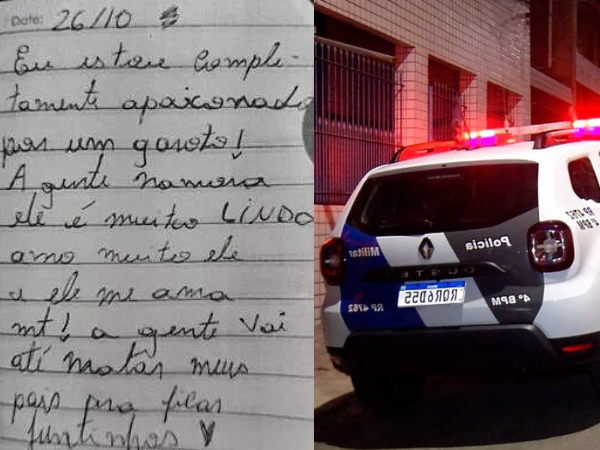 Date: 26/10
Eu estou comple-
tamente apaixonada
por um garoto!
A gente namora
ele é muito LINDO
amo muito ele
e ele me ama
mt! a gente vai
até matar meus
pais pra ficar
juntinhos ♥
Militar
Polícia
DUSTER
4º BPM